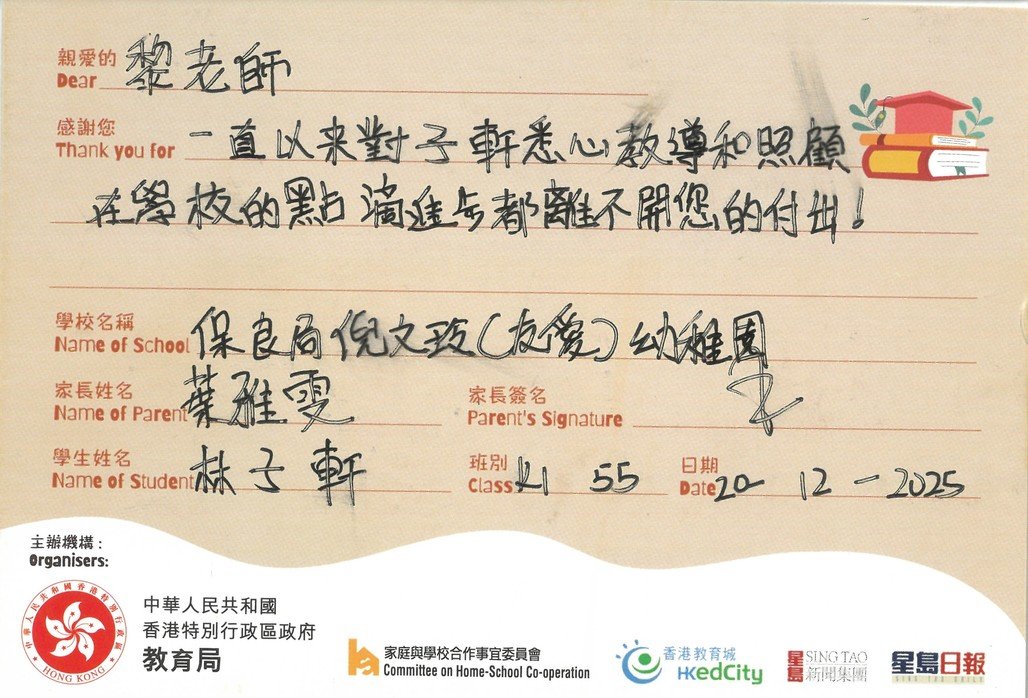 親愛的
Dear 黎老師
感謝您
Thank you for 一直以来對子軒悉心教導和照顧
在學校的點滴進步都離不開您的付出!
學校名稱
Name of School 保良局倪文玲(友愛)幼稚園
家長姓名 家長簽名
Name of Parent 葉雅雯 Parent's Signature
學生姓名 班別 日期
Name of Student 林子軒 Class K1 55 Date 20-12-2025
主辦機構:
Organisers:
中華人民共和國香港特別行政區政府
HONG KONG
中華人民共和國
香港特別行政區政府
教育局
家庭與學校合作事宜委員會
Committee on Home-School Co-operation
香港教育城
HKedCity
星島 SING TAO
新聞集團
星島日報
SING TAO DAILY